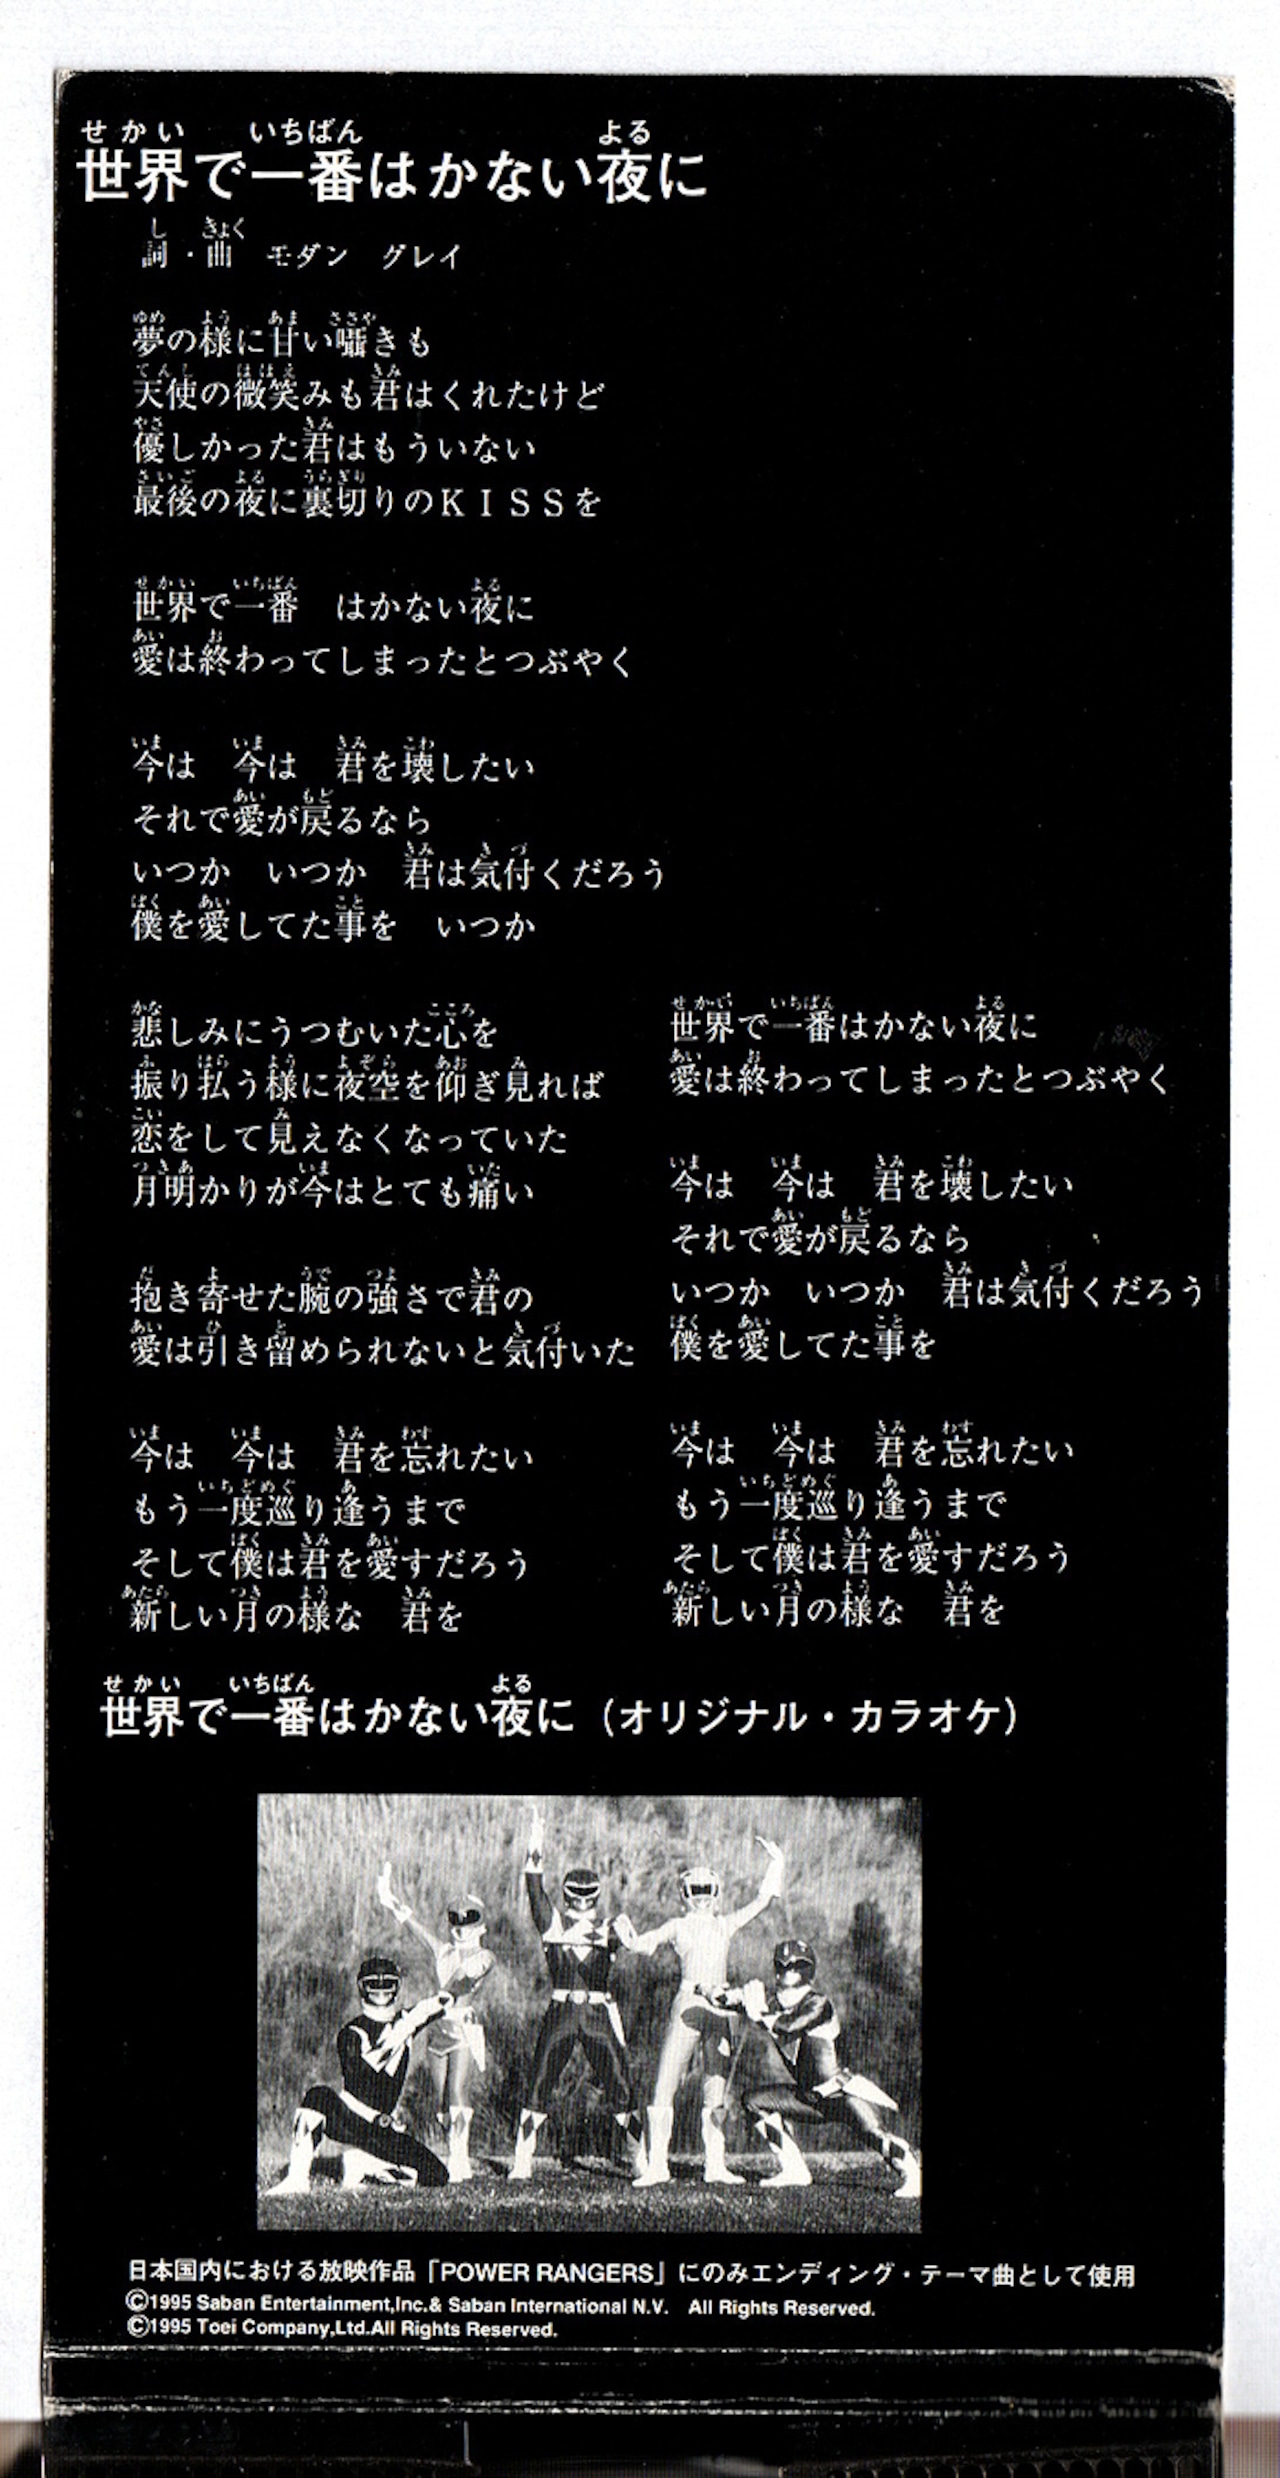 世界で一番はかない夜に
詞・曲　モダン　グレイ
夢の様に甘い囁きも
天使の微笑みも君はくれたけど
優しかった君はもういない
最後の夜に裏切りのKISSを
世界で一番　はかない夜に
愛は終わってしまったとつぶやく
今は　今は　君を壊したい
それで愛が戻るなら
いつか　いつか　君は気付くだろう
僕を愛してた事を　いつか
悲しみにうつむいた心を
振り払う様に夜空を仰ぎ見れば
恋をして見えなくなっていた
月明かりが今はとても痛い
抱き寄せた腕の強さで君の
愛は引き留められないと気付いた
今は　今は　君を忘れたい
もう一度巡り逢うまで
そして僕は君を愛すだろう
新しい月の様な　君を
世界で一番はかない夜に
愛は終わってしまったとつぶやく
今は　今は　君を壊したい
それで愛が戻るなら
いつか　いつか　君は気付くだろう
僕を愛してた事を
今は　今は　君を忘れたい
もう一度巡り逢うまで
そして僕は君を愛すだろう
新しい月の様な　君を
世界で一番はかない夜に（オリジナル・カラオケ）
日本国内における放映作品「POWER RANGERS」にのみエンディング・テーマ曲として使用
©1995 Saban Entertainment,Inc.& Saban International N.V.　All Rights Reserved.
©1995 Toei Company,Ltd.All Rights Reserved.